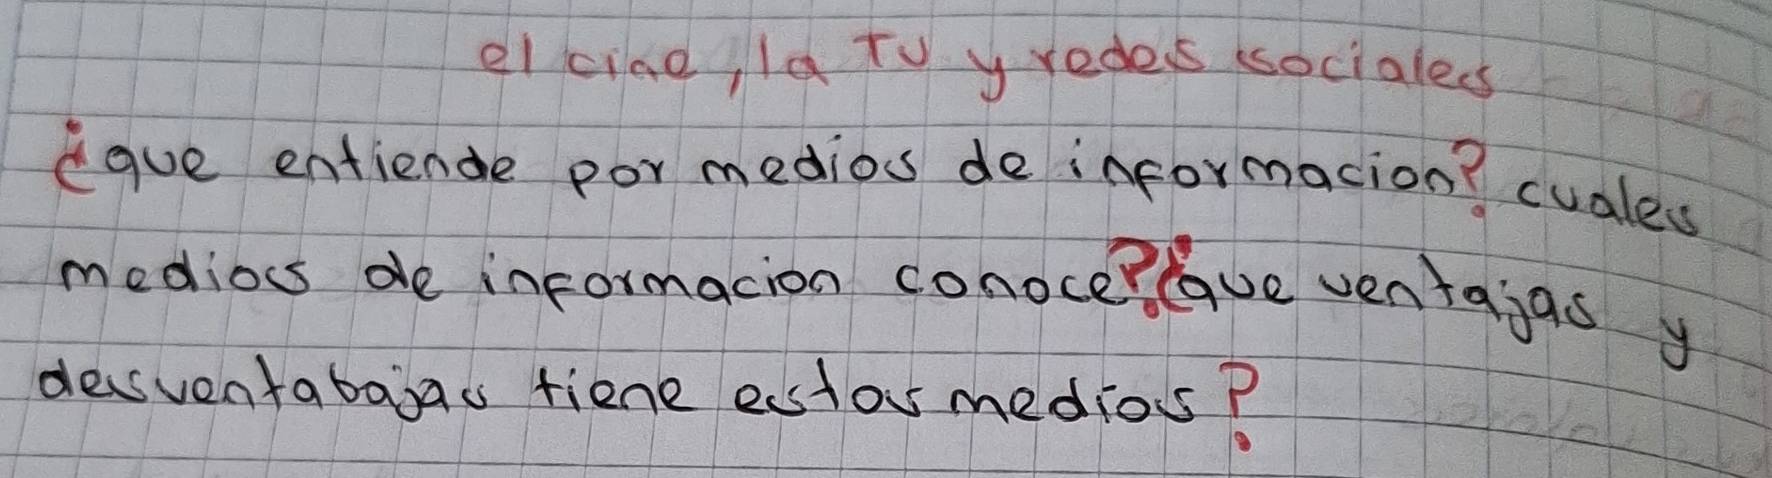 el cine, la TV y redes sociales
¿que entiende por medios de informacion? cuales
medios de informacion conoce? ¿que ventajas y
desventabajas tiene estos medios?